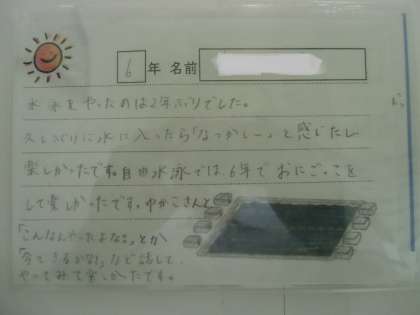 6年 名前
水泳をやったのは2年ぶりでした。
久しぶりに水に入ったら「なつかしー」と感じたし
楽しかったです。自由水泳では、6年でおにごっこを
して楽しかったです。ゆかこさんと
「こんなんやったよなぁ」とか
「今できるかな」など話して、
やってみて楽しかったです。